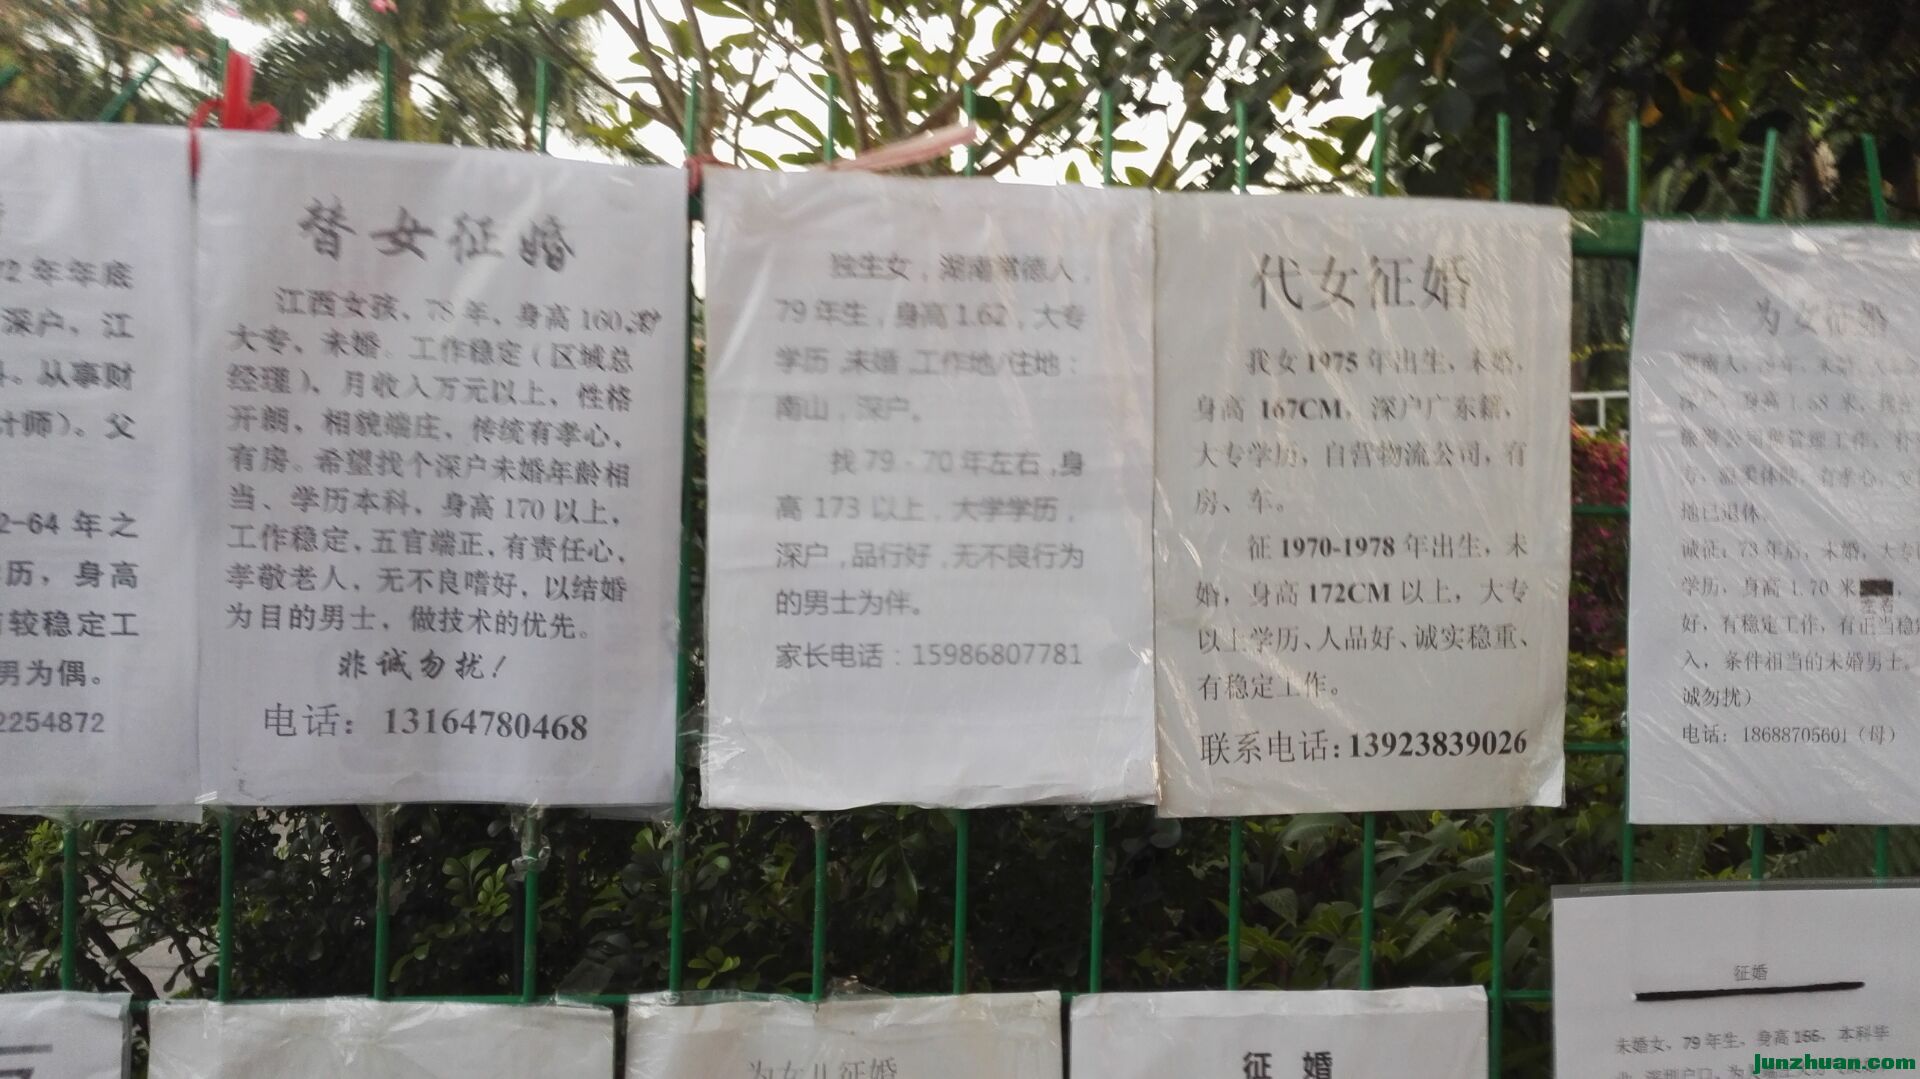 72年年底
深户，江
从事财
计师）。父
2-64年之
历，身高
有较稳定工
男为偶。
2254872
替女征婚
江西女孩、78年、身高160、深户
大专、未婚。工作稳定（区域总
经理）、月收入万元以上，性格
开朗，相貌端庄、传统有孝心，
有房。希望找个深户未婚年龄相
当、学历本科，身高170以上，
工作稳定，五官端正，有责任心，
孝敬老人，无不良嗜好，以结婚
为目的男士，做技术的优先。
非诚勿扰！
电话：13164780468
独生女，湖南常德人，
79年生，身高1.62，大专
学历,未婚,工作地/住地：
南山，深户。
找79-70年左右,身
高173以上，大学学历，
深户,品行好,无不良行为
的男士为伴。
家长电话：15986807781
代女征婚
我女1975年出生，未婚，
身高167CM，深户广东籍，
大专学历，自营物流公司，有
房、车。
征1970-1978年出生，未
婚，身高172CM以上，大专
以上学历、人品好、诚实稳重、
有稳定工作。
联系电话:13923839026
为女征婚
湖南人，79年，未婚，
深户，身高1.58米，
旅游公司做管理工作，
专，温柔体贴，有孝心，父
地已退休。
诚征：73年后，未婚，大专
学历，身高1.70米
左右
好，有稳定工作，有正当稳定
入，条件相当的未婚男士。
诚勿扰）
电话：18688705601（母）
为女儿征婚
征 婚
征婚
未婚女，79年生，身高155，本科毕
junzhuan.com